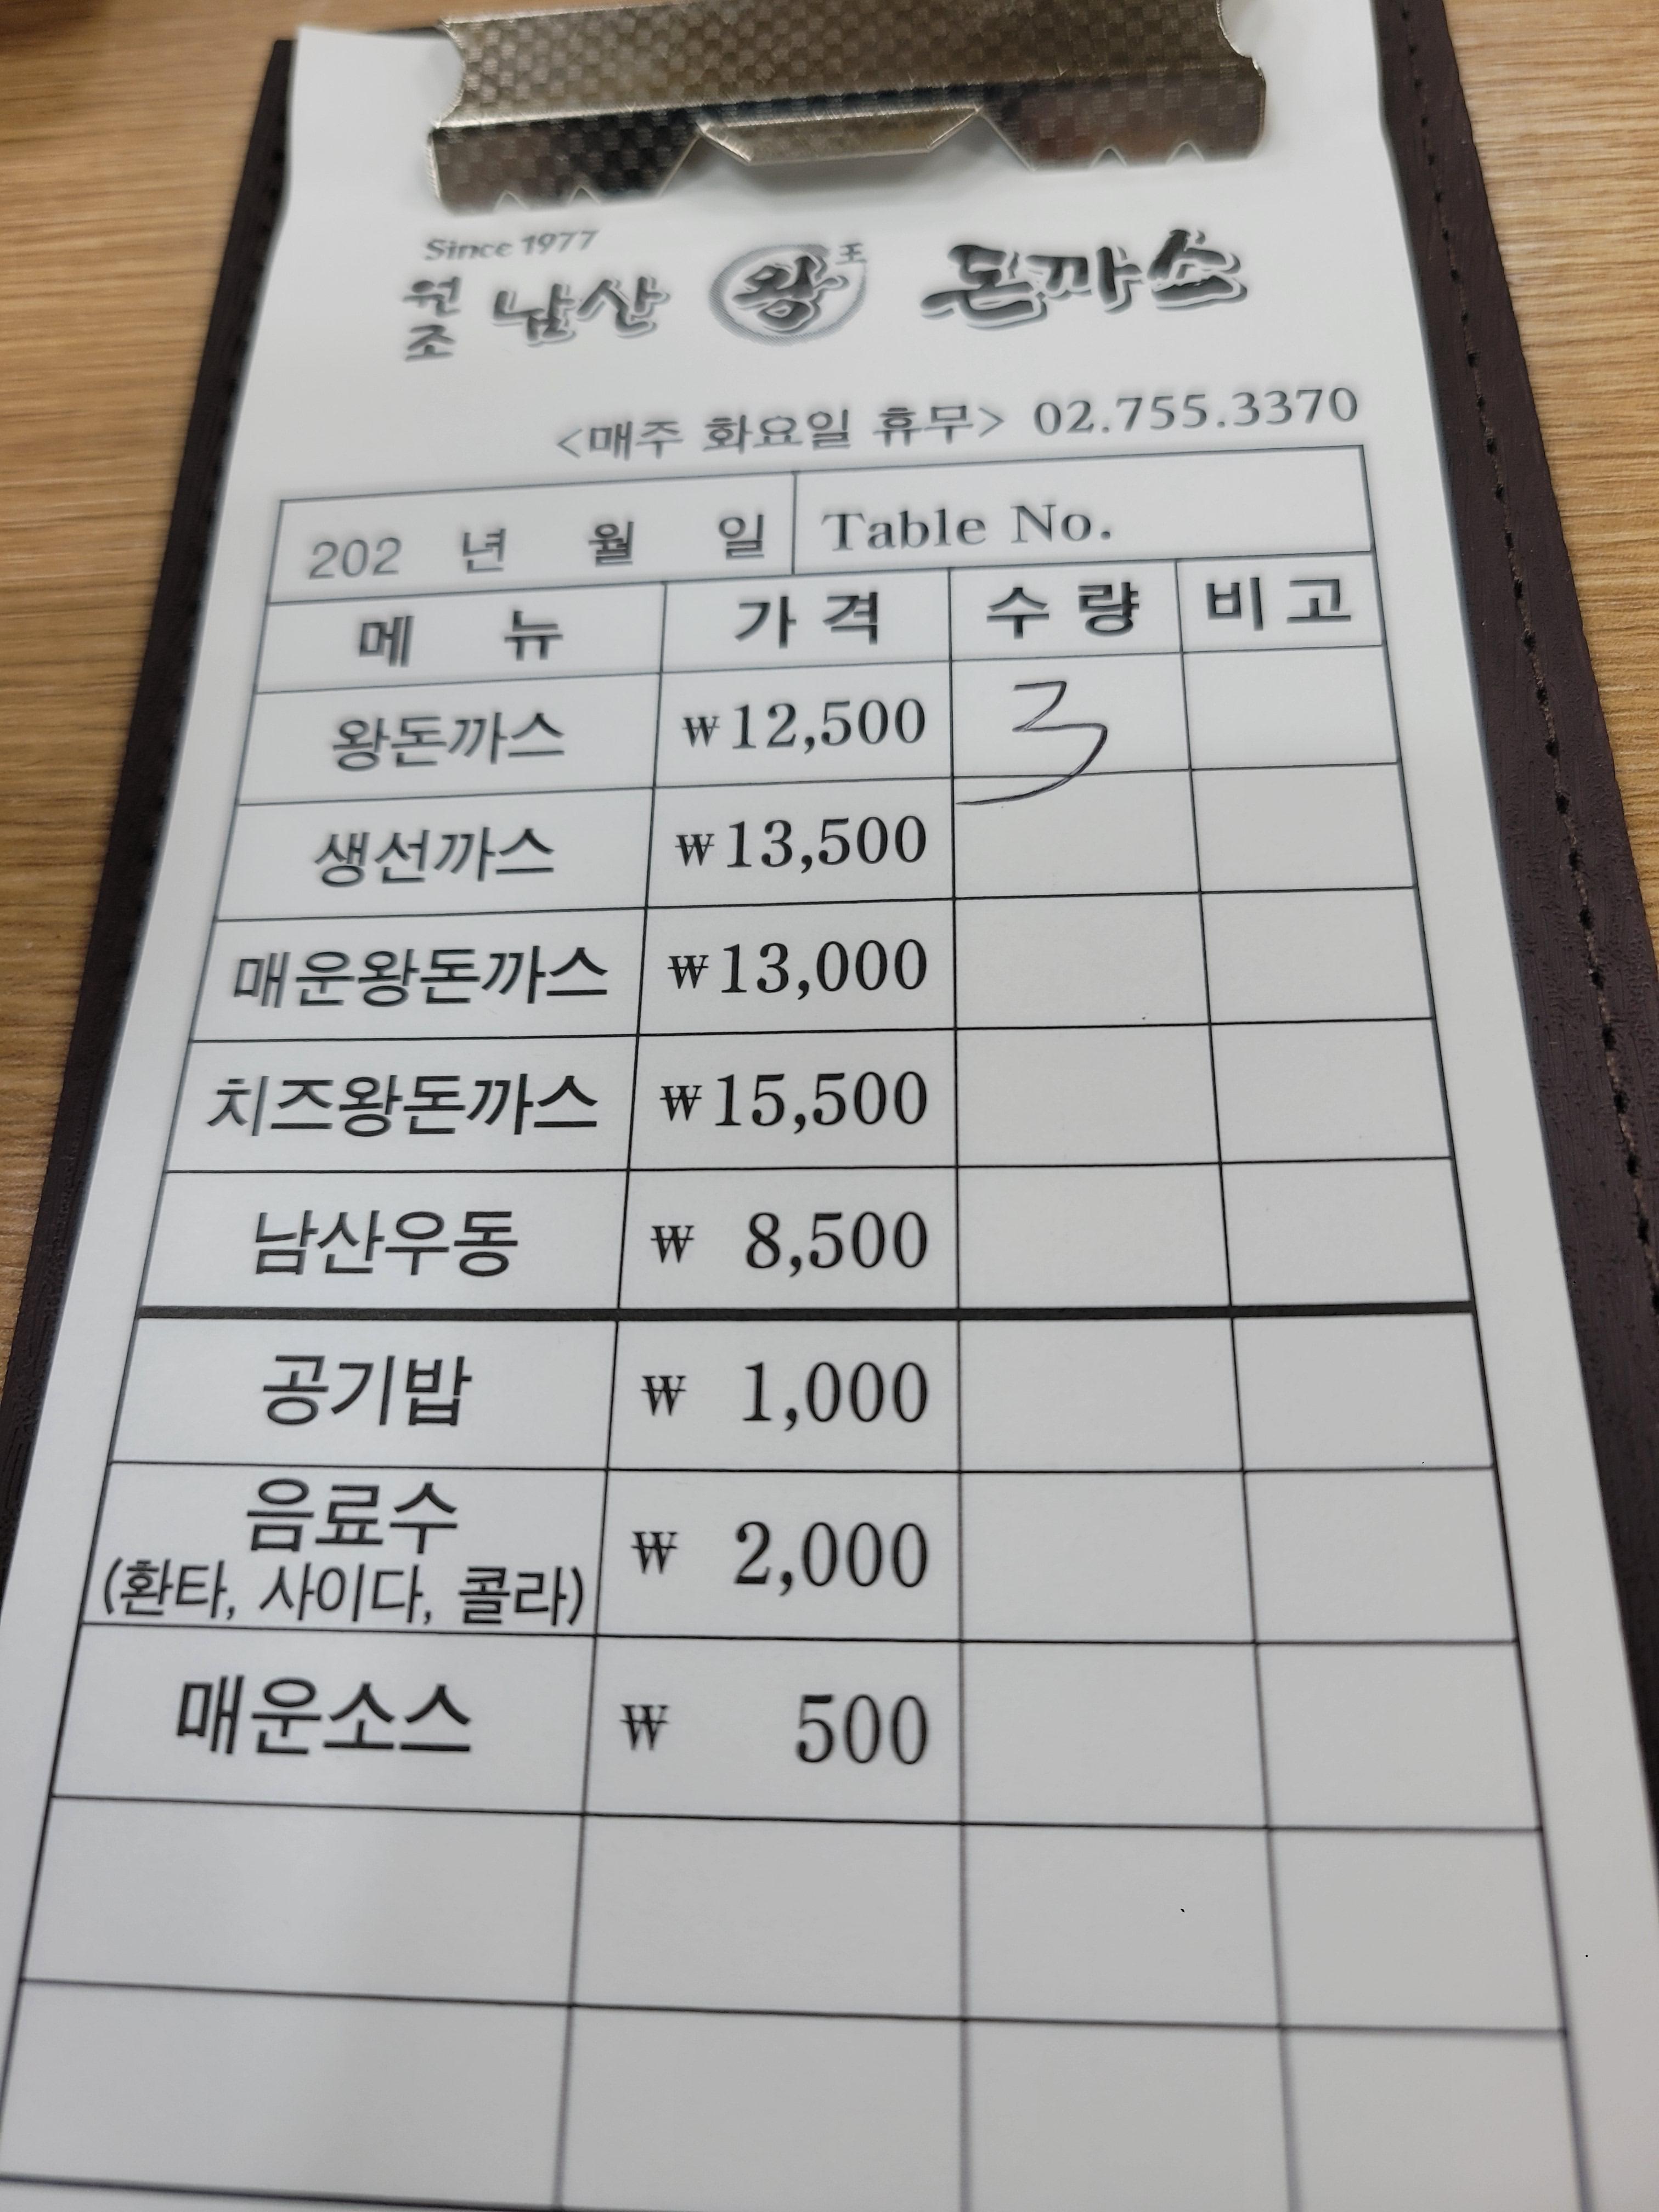 Since 1977
원조 남산 왕 王 돈까스
<매주 화요일 휴무> 02.755.3370
202 년 월 일 Table No.
메 뉴 가 격 수 량 비 고
왕돈까스 ₩12,500 3
생선까스 ₩13,500
매운왕돈까스 ₩13,000
치즈왕돈까스 ₩15,500
남산우동 ₩ 8,500
공기밥 ₩ 1,000
음료수
(환타, 사이다, 콜라) ₩ 2,000
매운소스 ₩ 500